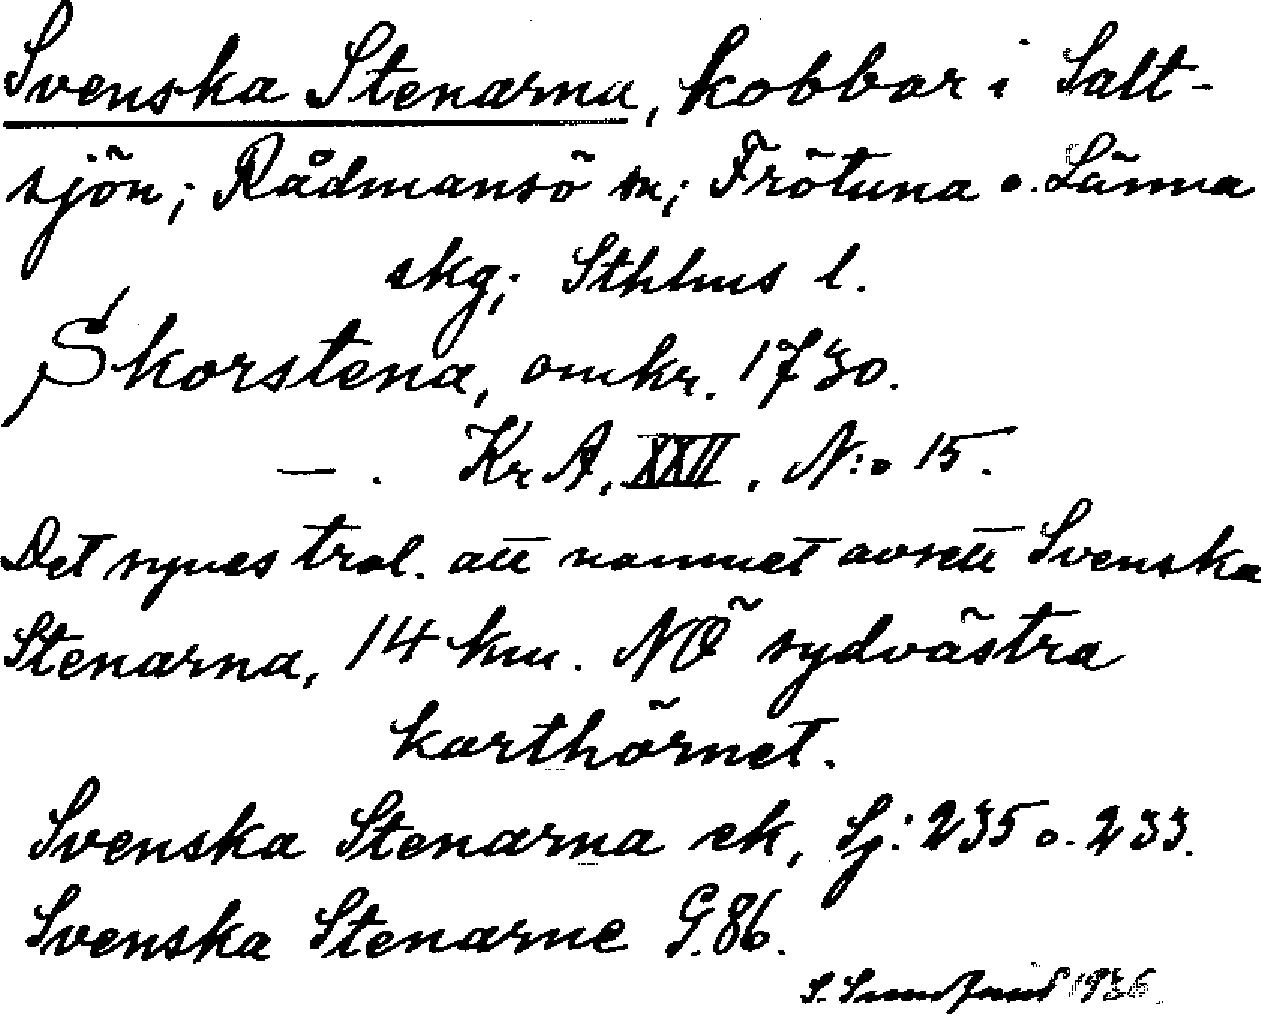 Svenska Stenarna, kobbar i Salt-
sjön; Rådmansö sn; Frötuna o. Länna
skg; Sthlms l.
Skorstena, omkr. 1730.
—. KrA, XXII, N:o 15.
Det synes trol. att namnet avsett Svenska
Stenarna, 14 km. NÖ sydvästra
karthörnet.
Svenska Stenarna ek, Sj: 235 o. 233.
Svenska Stenarne G. 86.
S. 1936.